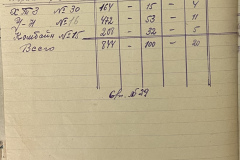 ХТЗ № 30 164 - 15 - 4
У-2 № 16 472 - 53 - 11
Комбайн №15 208 - 32 - 5
Всего 844 - 100 - 20
Стр. №29